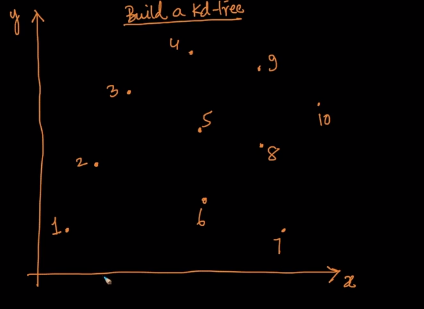 Build a Kd-tree
y
4
9
3
10
5
8
2
6
1
7
x